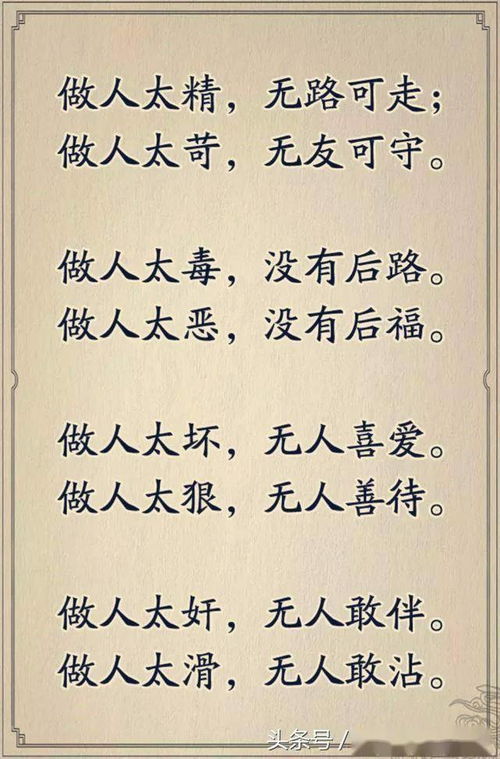 做人太精，无路可走；
做人太苛，无友可守。
做人太毒，没有后路。
做人太恶，没有后福。
做人太坏，无人喜爱。
做人太狠，无人善待。
做人太奸，无人敢伴。
做人太滑，无人敢沾。
头条号 /